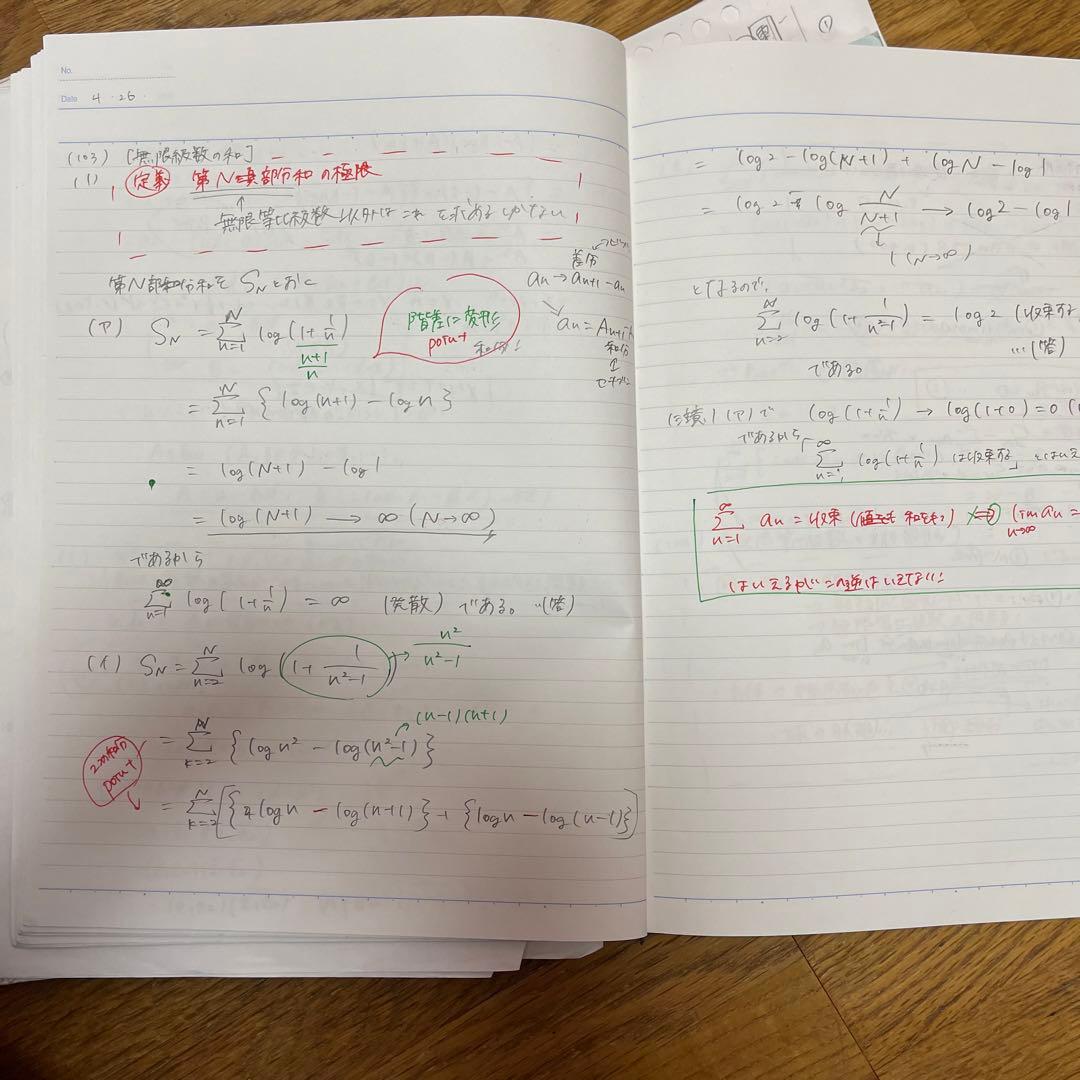 No.
Date 4・26・
(103) [無限級数の和]
(1) 定義 第N項部分和の極限
↑
無限等比級数以外はこれを求めるしかない
第N部分和を S_Nとおく
差分
a_n → a_{n+1} - a_n
(ア) S_N = \sum_{n=1}^{N} log(1+\frac{1}{n})
\frac{n+1}{n}
階差に変形
point
和分!
a_n = A_{n+1}-
和分
↑
= \sum_{n=1}^{N} { log(n+1) - log n }
= log(N+1) - log 1
= log(N+1) → ∞ (N→∞)
であるから
\sum_{n=1}^{∞} log(1+\frac{1}{n}) = ∞ (発散) である。…(答)
(イ) S_N = \sum_{n=2}^{N} log(1+\frac{1}{n^2-1}) → \frac{n^2}{n^2-1}
(n-1)(n+1)
= \sum_{k=2}^{N} { log n^2 - log(n^2-1) }
point
= \sum_{k=2}^{N} [ { log n - log(n+1) } + { log n - log(n-1) } ]
①
= log 2 - log(N+1) + log N - log 1
= log 2 + log \frac{N}{N+1} → log 2 - log 1
↓
1 (N→∞)
となるので、
\sum_{n=2}^{∞} log(1+\frac{1}{n^2-1}) = log 2 (収束)
…(答)
である。
(ア)で log(1+\frac{1}{n}) → log(1+0) = 0
であるから
\sum_{n=1}^{∞} log(1+\frac{1}{n}) は収束する」とはいえ
\sum_{n=1}^{∞} a_n = 収束 ( 和をもつ) ⇒ lim_{n→∞} a_n =
はいえるが の逆はいえない!